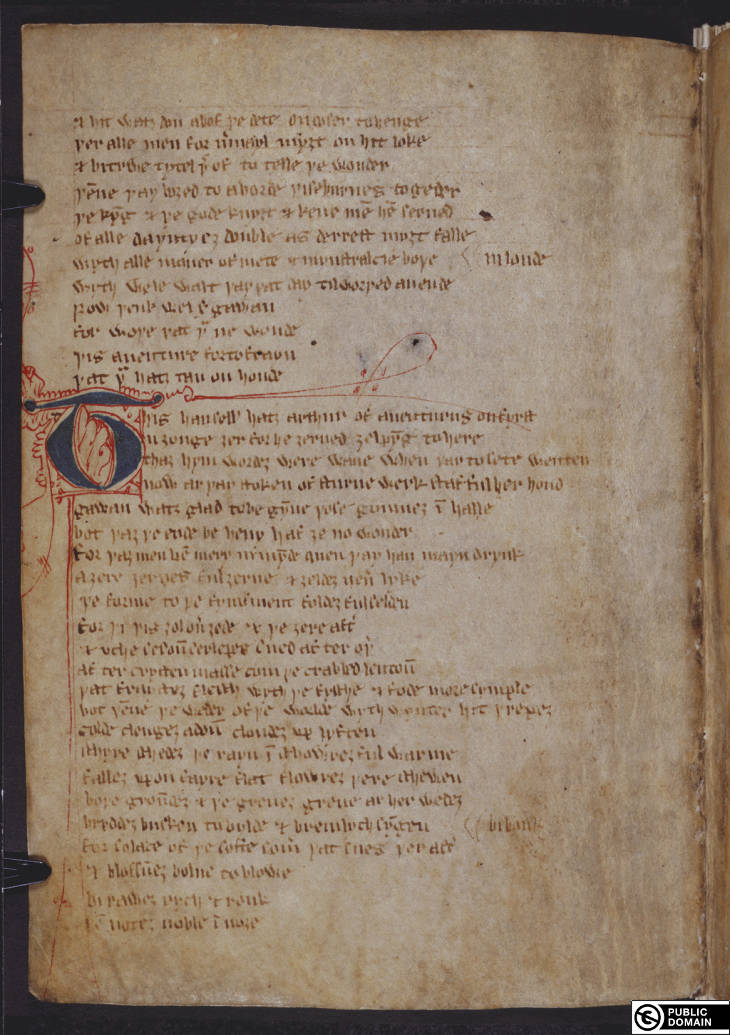 & hit watȝ don abof þe dece on doser to henge
þer alle men for m̾uayl myȝt on hit loke
& bi trwe tytel þ̾of to telle þe wonder
þēne þay boȝed to a borde þise burnes to geder
þe kyng & þe gode knyȝt & kene mē hē serued
of alle dayntyeȝ double as derrest myȝt falle
wyth alle man̾ of mete & mynstralcie boþe in londe
wyth wele walt þay þat day til worþed an ende
now þenk wel s̾ gawan
for woþe þat þᵘ ne wonde
þis auenture forto frayn
þat þᵘ hatȝ tan on honde
This hanselle hatȝ arthur of auenturus on fyrst
in ȝonge ȝer for he ȝerned ȝelpyng to here
thaȝ hym wordeȝ were wane when þay to sete wenten
now ar þay stoken of sturne werk staf ful her hond
gawan watȝ glad to begȳne þose gomneȝ ī halle
bot þaȝ þe ende be heuy haf ȝe no wonder
for þaȝ men bē mery in mynde quen þay han mayn drynk
a ȝere ȝernes ful ȝerne & ȝeldeȝ neu̾ lyke
þe forme to þe fynisment foldeȝ ful selden
for þi þis ȝol ou̾ȝede & þe ȝere aft̾
& vche sesoū serlepes sued aft̾ oþ̾
aft̾ crystenmasse com þe crabbed lentoū
þat fraysteȝ flesch wyth þe fysche & fode more symple
bot þēne þe weder of þe worlde wyth wynter hit þrepeȝ
colde clengeȝ adoū cloudeȝ vp lyften
schyre schedeȝ þe rayn ī schowreȝ ful warme
falleȝ vpon fayre flat flowreȝ þere schewen
boþe groūdeȝ & þe greueȝ grene ar her wedeȝ
bryddeȝ busken to bylde & bremlych syngen bi bonk
for solace of þe softe som̾ þat sues þer aft̾
& blossūeȝ bolne to blowe
bi raweȝ rych & ronk
þē noteȝ noble īnoȝe
PUBLIC DOMAIN